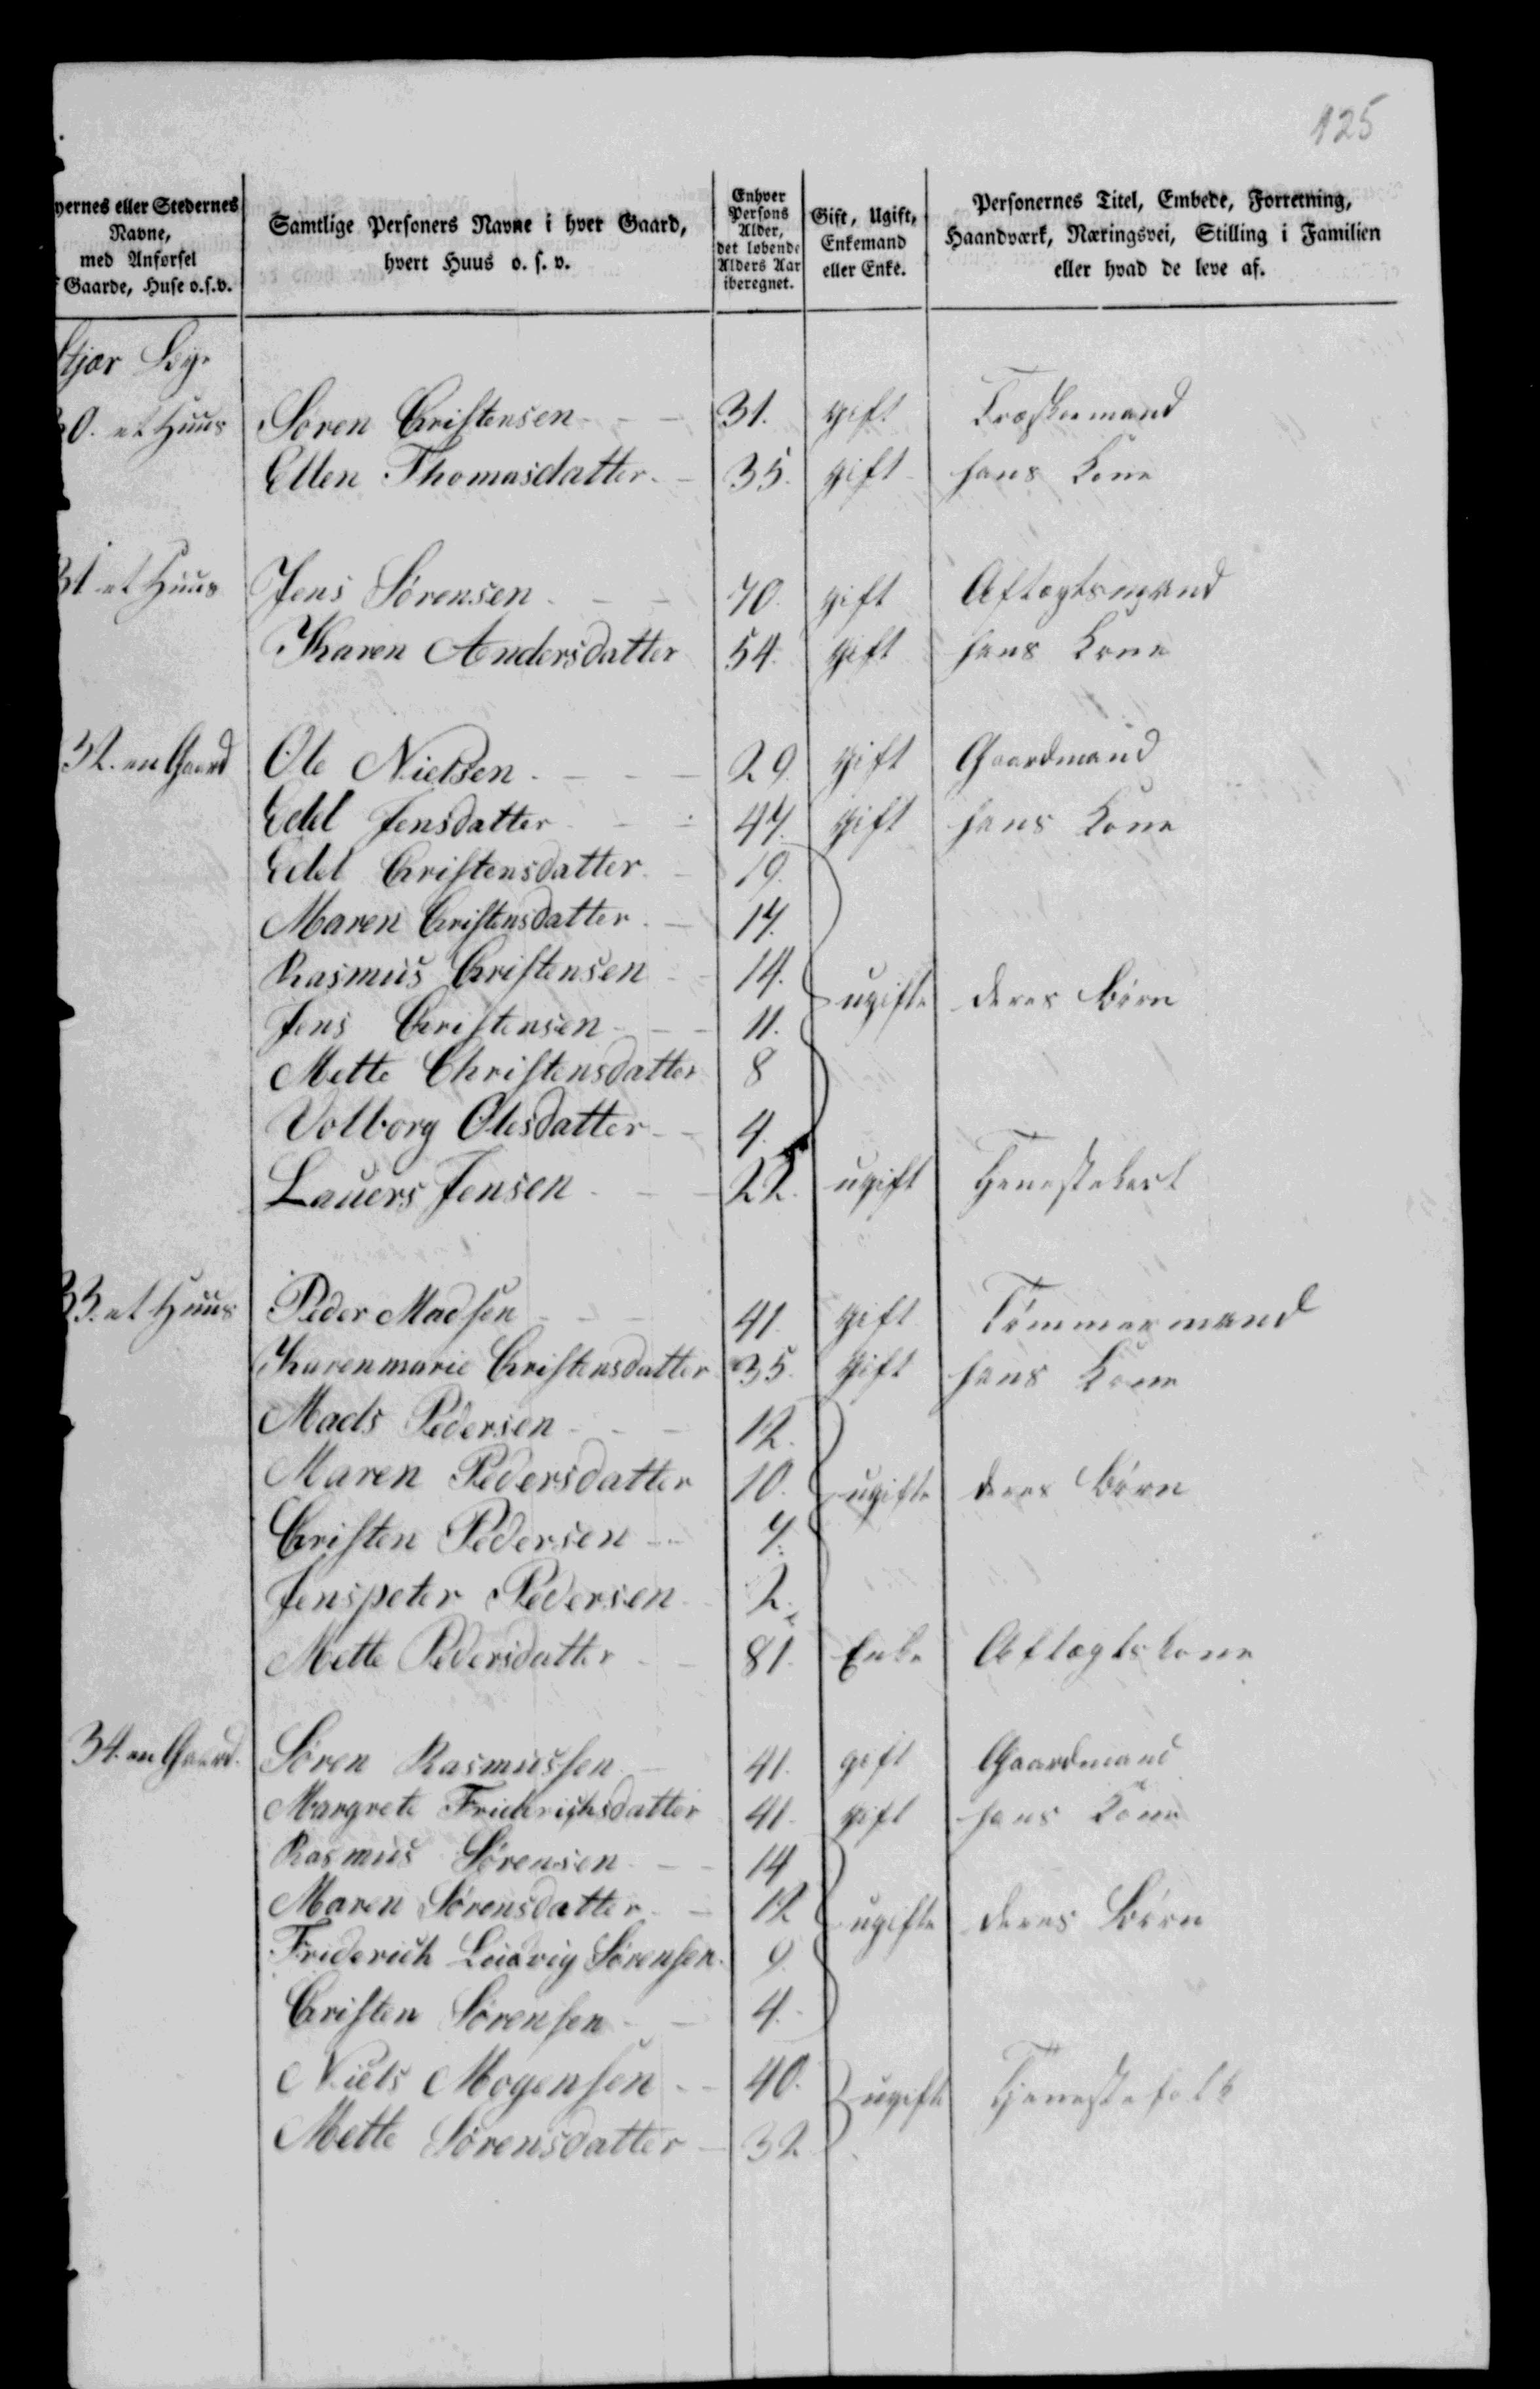 125
yernes eller Stedernes
Navne,
med Anførsel
Gaarde, Huse o.s.v.
Samtlige Personers Navne i hver Gaard,
hvert Huus o. s. v.
Enhver
Persons
Alder,
det løbende
Alders Aar
iberegnet.
Gift, Ugift,
Enkemand
eller Enke.
Personernes Titel, Embede, Forretning,
Haandværk, Næringsvei, Stilling i Familien
eller hvad de leve af.
Stjær Bÿe
30. et Huus Søren Christensen 31. gift Træskoemand
Ellen Thomasdatter 35. gift hans Kone
31 et Huus Jens Sørensen 70. gift Aftægtsmand
Karen Andersdatter 54. gift hans Kone
32. en Gaard Ole Nielsen 29. gift Gaardmand
Edel Jensdatter 47. gift hans Kone
Edel Christensdatter 19.
Maren Christensdatter 17.
Rasmus Christensen 14.
ugifte deres Børn
Jens Christensen 11.
Mette Christensdatter 8
Volborg Olesdatter 4.
Lauers Jensen 22. ugift Tjenestekarl
33. et Huus Peder Madsen 41. gift Tømmermand
Karenmarie Christensdatter 35. gift hans Kone
Mads Pedersen 12.
Maren Pedersdatter 10. ugifte deres Børn
Christen Pedersen 7.
Jenspeter Pedersen 2.
Mette Pedersdatter 81. Enke Aftægtskone
34. en Gaard. Søren Rasmussen 41. gift Gaardmand
Margrete Friderichsdatter 41. gift hans Kone
Rasmus Sørensen 14
Maren Sørensdatter 12 ugifte deres Børn
Friderich Ludvig Sørensen 9.
Christen Sørensen 4.
Niels Mogensen 40. ugifte Tjenestefolk
Mette Sørensdatter 32